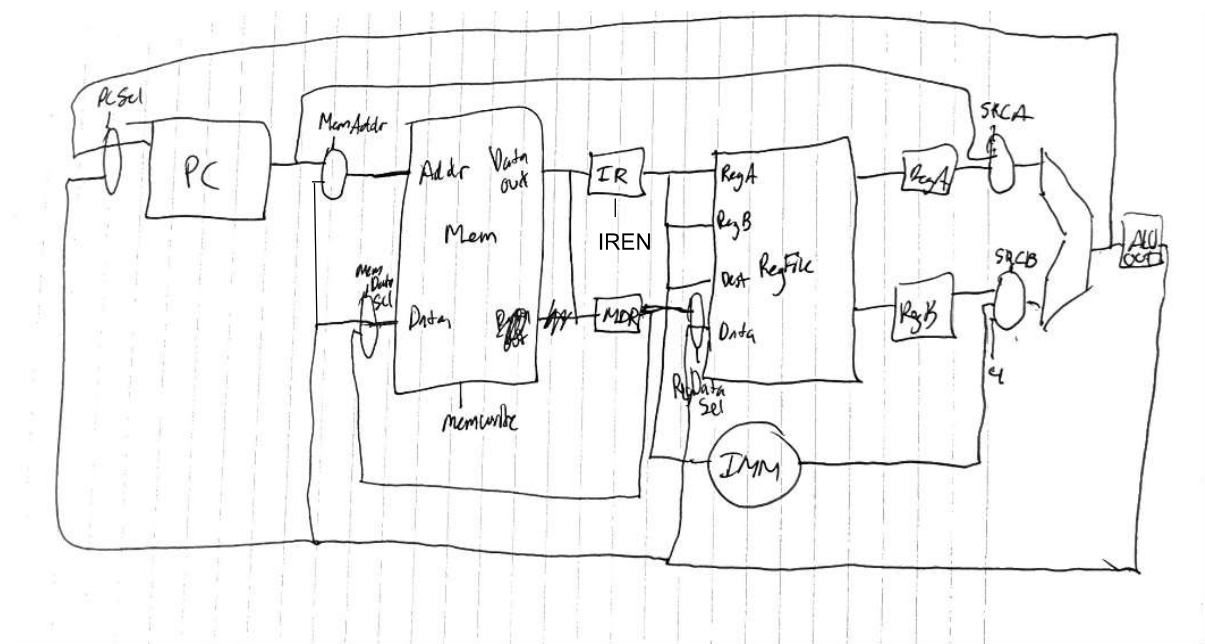 PCSel
PC
MemAddr
Addr
Data
out
Mem
Mem
Data
Sel
Data
memwrite
IR
IREN
MDR
RegA
RegB
Dest
RegFile
Data
RegData
Sel
IMM
RegA
RegB
SRCA
SRCB
4
ALU
OUT